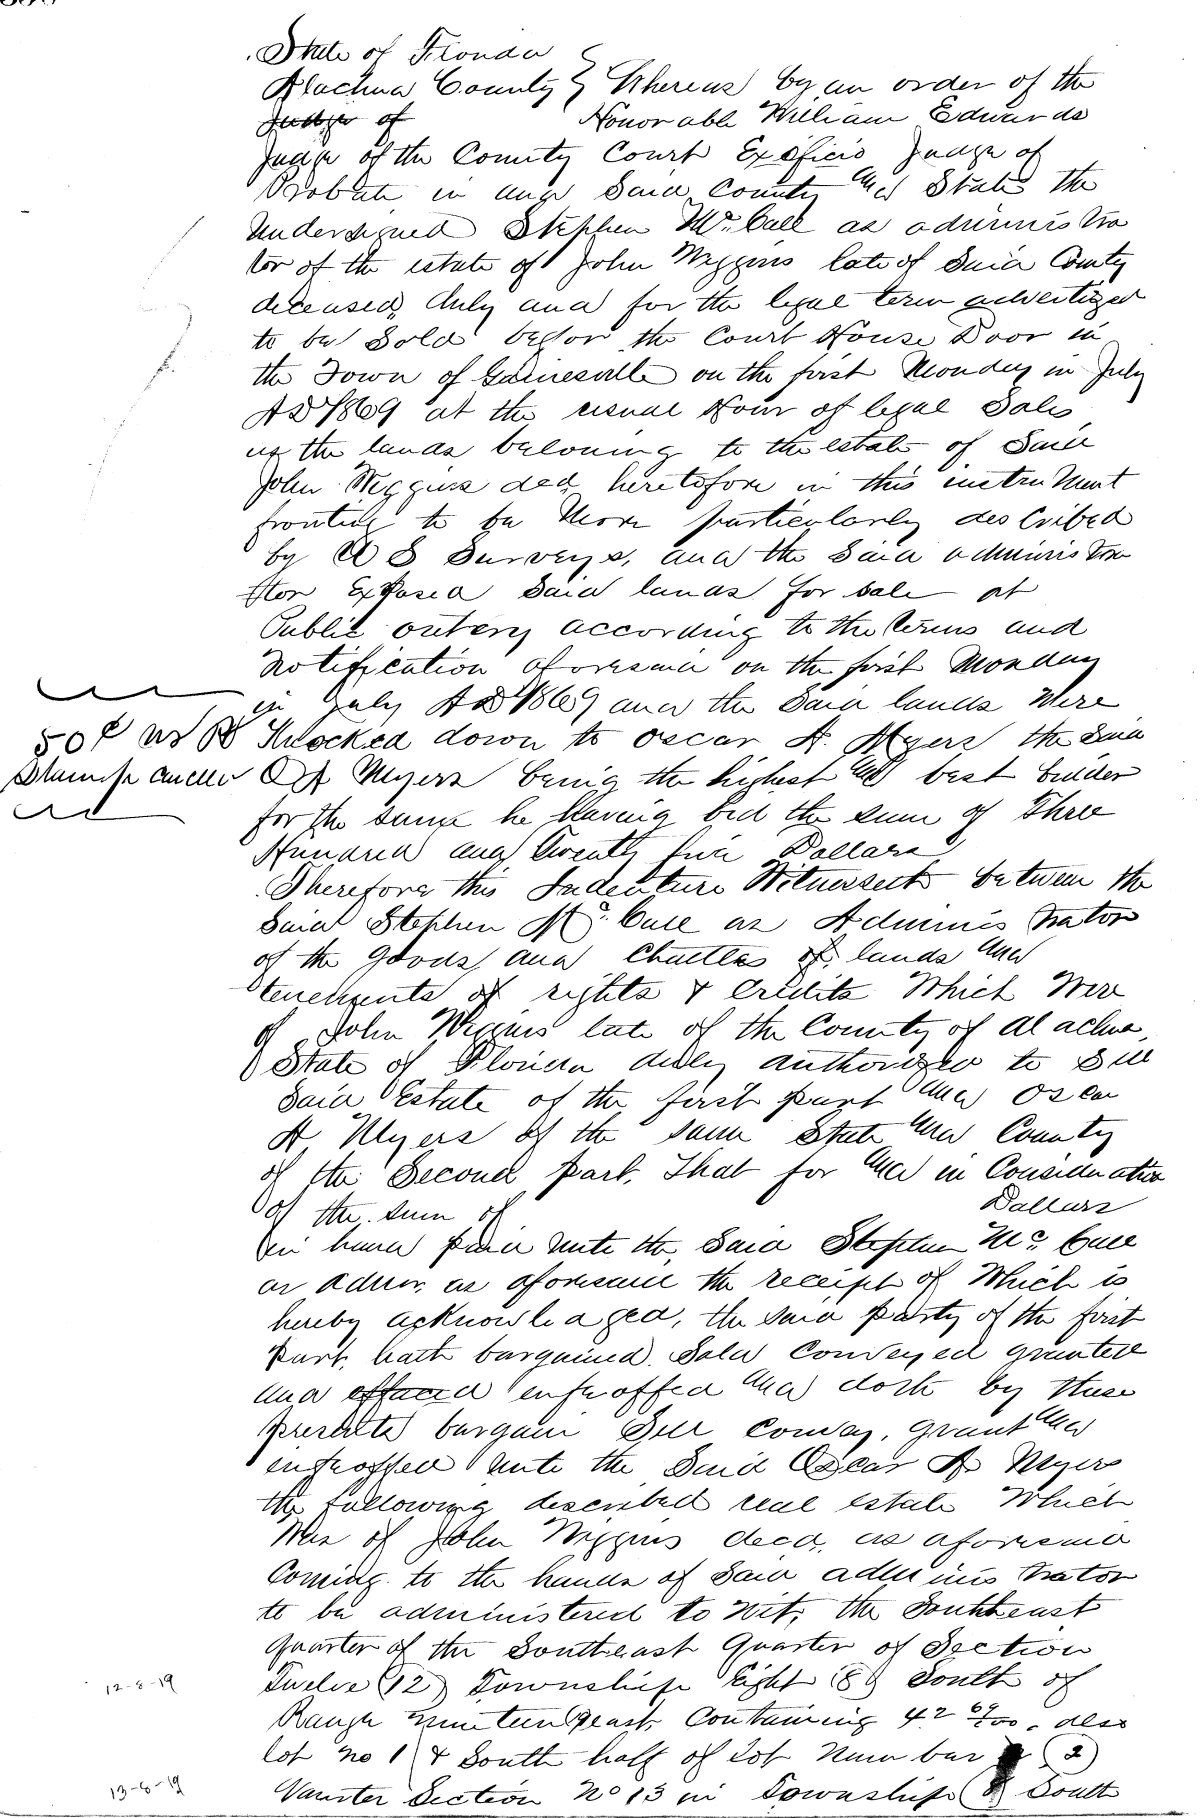 State of Florida
Alachua County } Whereas by an order of the
Judge of Honorable William Edwards
Judge of the County Court Exoficio Judge of
Probate in and Said County and State the
undersigned Stephen McCall as administra
tor of the estate of John Wiggins late of Said County
deceased, duly and for the legal term advertized
to be Sold befor the Court House Door in
the Town of Gainesville on the first Monday in July
AD 1869 at the usual Hour of legal Sales
us the lands beloning to the estate of Said
John Wiggins decd, heretofore in this instrument
to be More particularly described
by U S Surveys, and the Said administra
tor Exposed Said lands for sale at
Public outcry according to the terms and
notification aforesaid on the first Monday
in July AD 1869 and the Said lands Were
50¢ US R Knocked down to Oscar A. Myers the Said
Stamp O A Myers being the highest and best bidder
for the same he Having bid the sum of Three
Hundred and Twenty five Dollars
Therefore this Indenture Witnesseth between the
Said Stephen Mc. Call as Administrator
of the goods and Chattles of lands and
tenements of rights & Credits Which Were
of John Wiggins late of the County of Alachua
State of Florida duly authorized to Sell
Said Estate of the first part and Oscar
A Myers of the same State and County
of the Second part. That for and in Consideration
of the sum of Dollars
in hand paid unto the Said Stephen Mc. Call
as admr. as aforesaid the receipt of Which is
hereby acknowledged, the said party of the first
Part, hath bargained Sold Conveyed granted
and enfeoffed and doth by these
presents bargain Sell Convey, grant and
enfeoffed unto the Said Oscar A Myers
the following described real estate Which
Was of John Wiggins decd. as aforesaid
Coming to the hands of Said administrator
to be administered to Wit, the Southeast
quarter of the Southeast Quarter of Section
12-8-19 Twelve (12) Township Eight (8) South of
Range nineteen east, Containing 42 69/100. also
lot no 1 & South half of Lot Number (2)
13-8-19 Section No 13 in Township 8 South